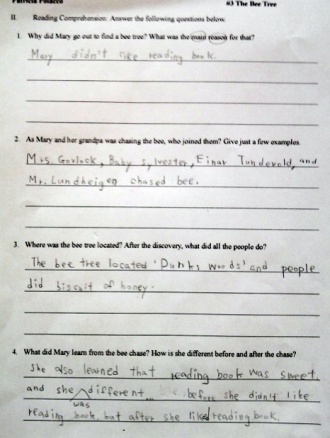 Patricia Polacco #3 The Bee Tree
II. Reading Comprehension: Answer the following questions below.
1. Why did Mary go out to find a bee tree? What was the main reason for that?
Mary didn't like reading book.
2. As Mary and her grandpa was chasing the bee, who joined them? Give just a few examples.
Mrs. Govlock, Baby Sylvester, Einar Tundevold, and
Mr. Lundheigen chased bee.
3. Where was the bee tree located? After the discovery, what did all the people do?
The bee tree located 'Dunks woods' and people
did biscuit of honey.
4. What did Mary learn from the bee chase? How is she different before and after the chase?
She also learned that reading book was sweet.
and she was different... before she didn't like
reading book, but after she liked reading book.